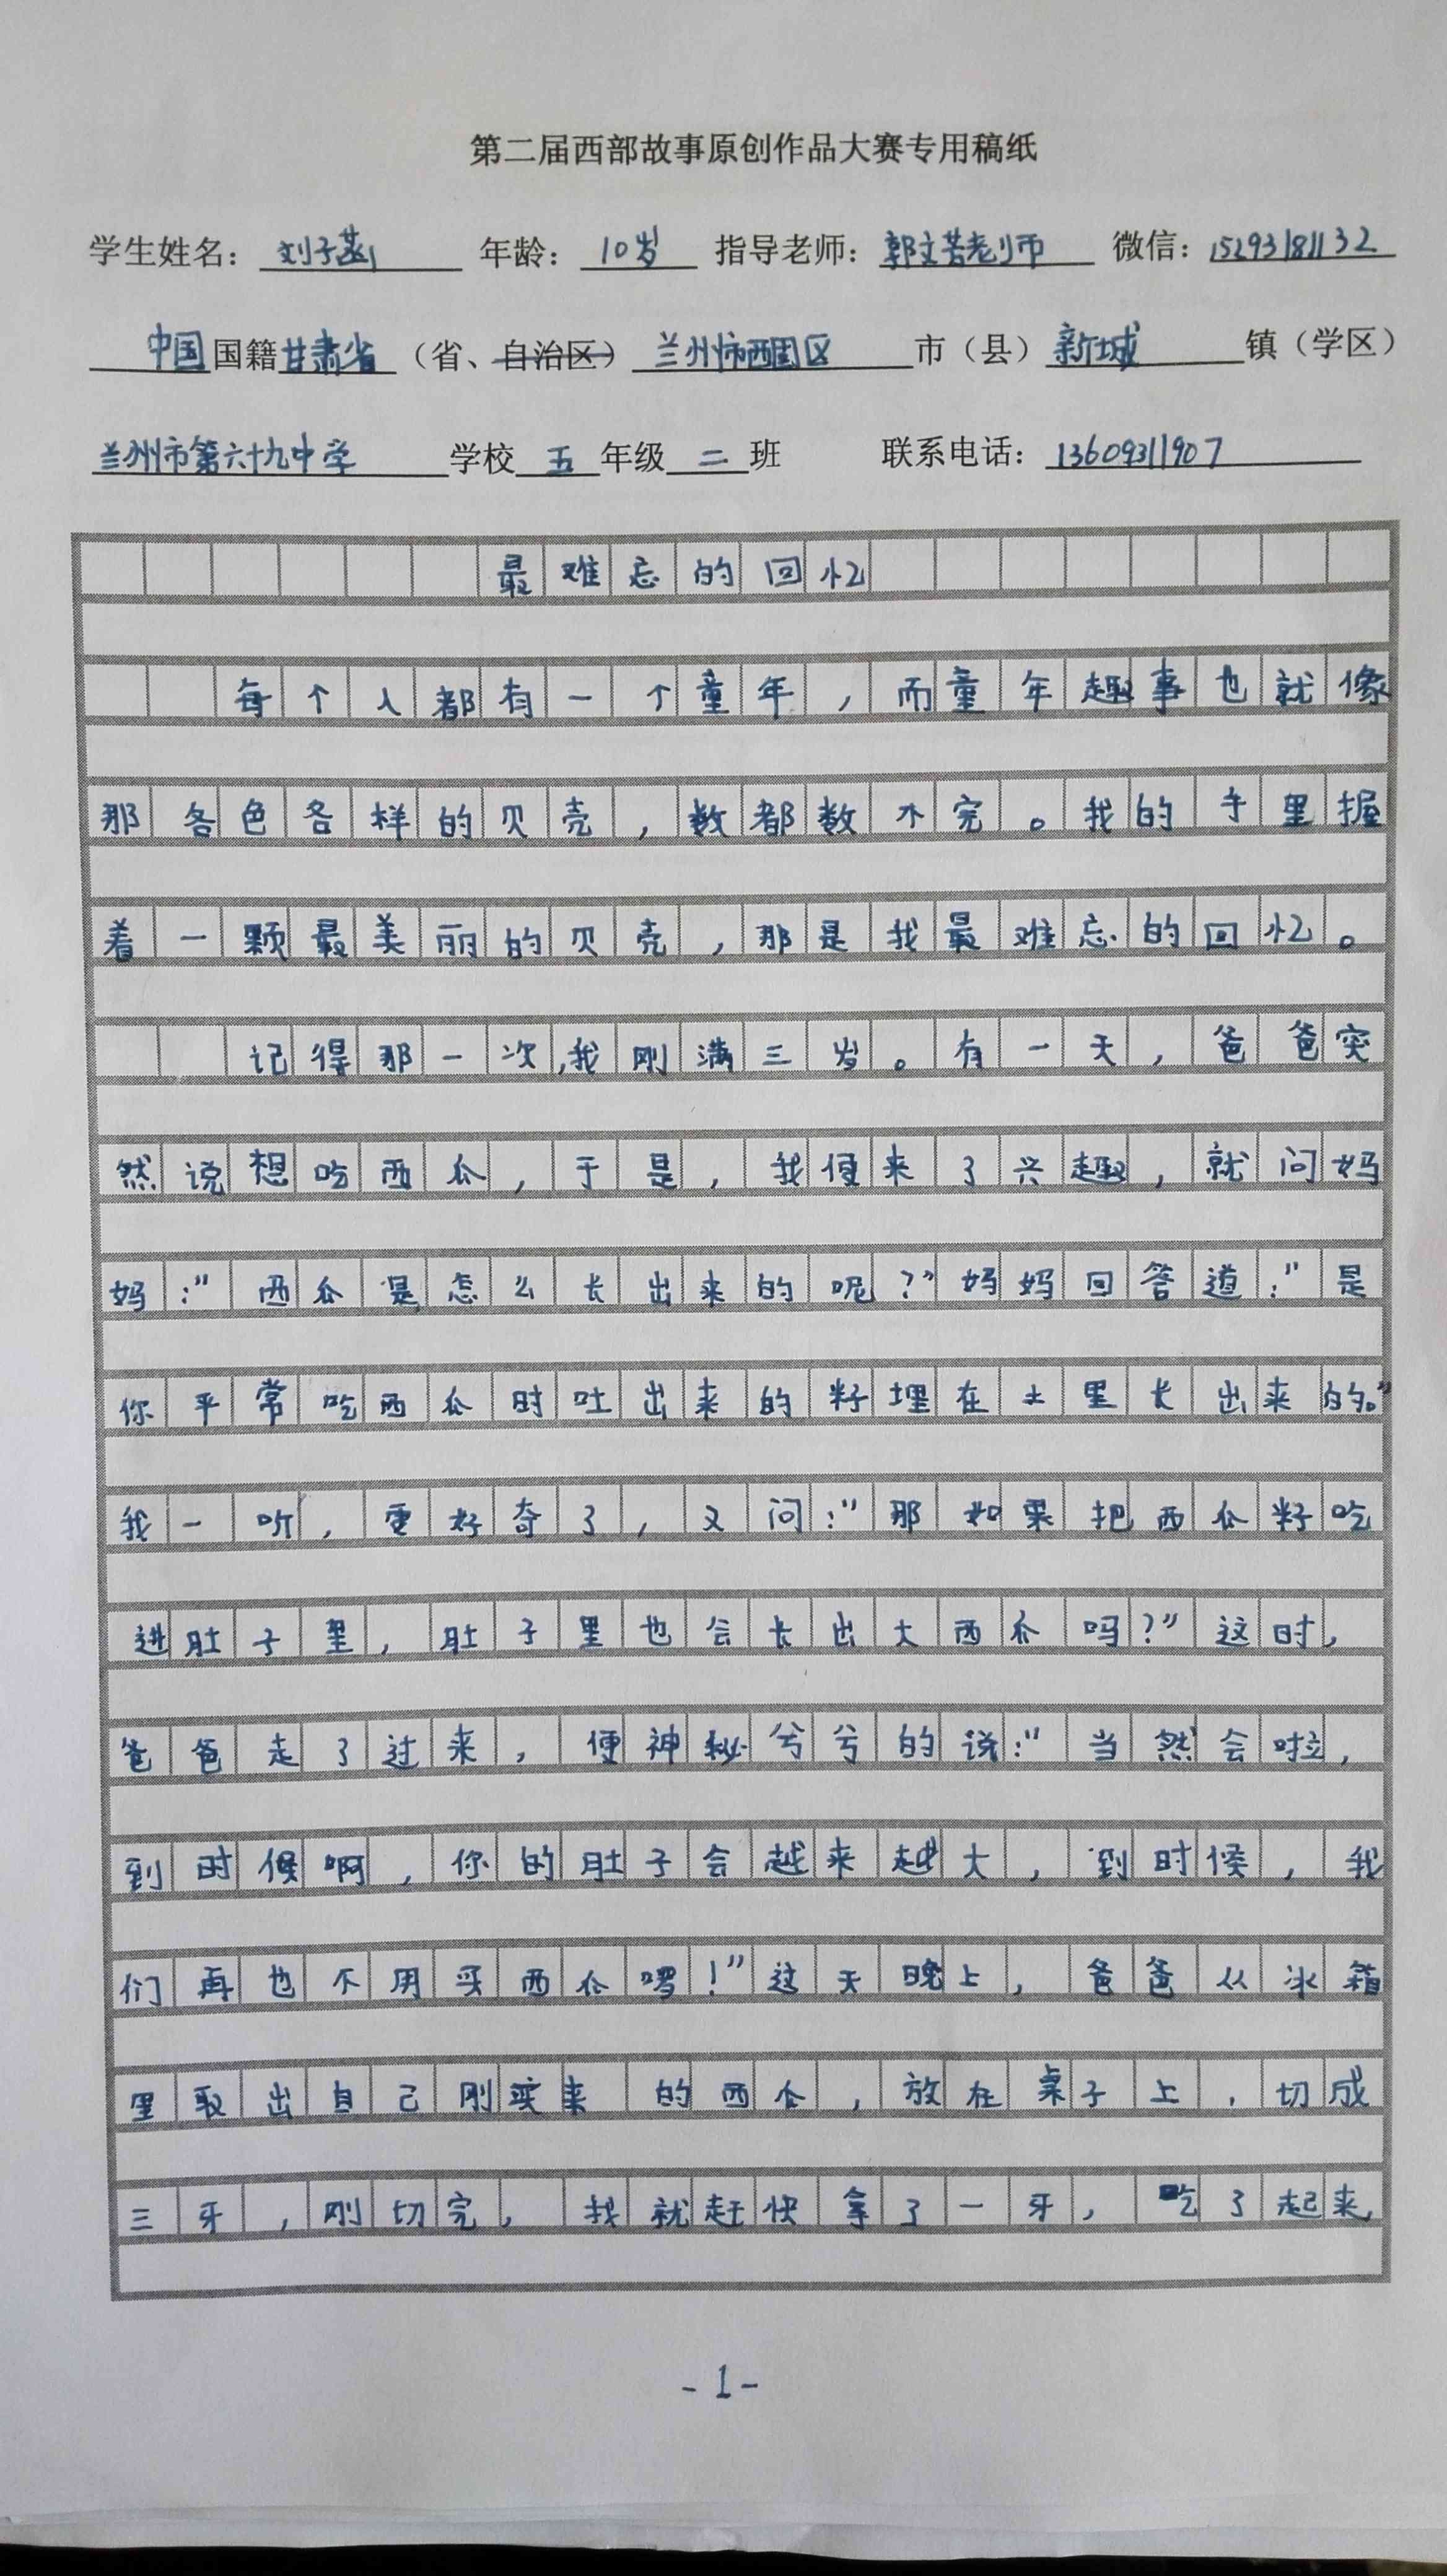 第二届西部故事原创作品大赛专用稿纸
学生姓名：刘子菡 年龄：10岁 指导老师：郭文芳老师 微信：15293181132
中国国籍甘肃省（省、自治区）兰州市西固区市（县）新城镇（学区）
兰州市第六十九中学学校五年级二班 联系电话：13609311907
最难忘的回忆
每个人都有一个童年，而童年趣事也就像
那各色各样的贝壳，数都数不完。我的手里握
着一颗最美丽的贝壳，那是我最难忘的回忆。
记得那一次，我刚满三岁。有一天，爸爸突
然说想吃西瓜，于是，我便来了兴趣，就问妈
妈：“西瓜是怎么长出来的呢？”妈妈回答道：“是
你平常吃西瓜时吐出来的籽埋在土里长出来的。”
我一听，更好奇了，又问：“那如果把西瓜籽吃
进肚子里，肚子里也会长出大西瓜吗？”这时，
爸爸走了过来，便神秘兮兮的说：“当然会啦，
到时候啊，你的肚子会越来越大，到时候，我
们再也不用买西瓜啰！”这天晚上，爸爸从冰箱
里取出自己刚买来的西瓜，放在桌子上，切成
三牙，刚切完，我就赶快拿了一牙，吃了起来，
-1-